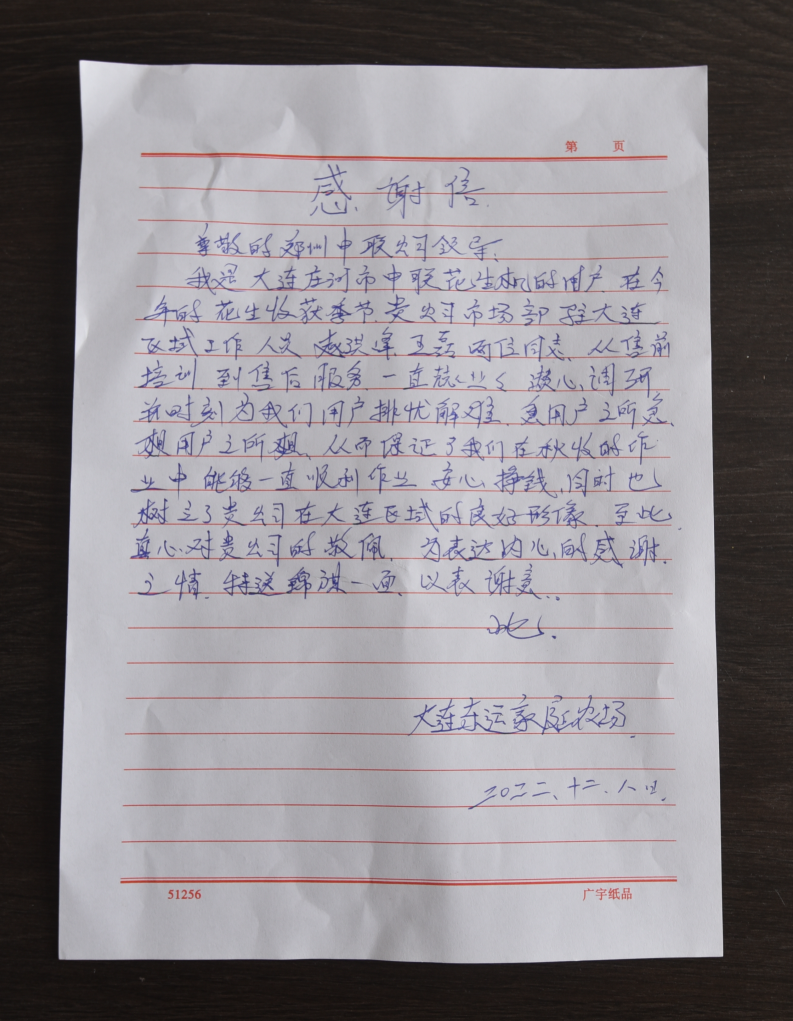 第 页
感谢信
尊敬的郑州中联公司领导:
我是大连庄河市中联花生机的用户.在今
年的花生收获季节.贵公司市场部驻大连
区域工作人员 洪峰 王磊两位同志.从售前
培训.到售后服务.一直兢兢业业 潜心调研
并时刻为我们用户排忧解难.急用户之所急.
想用户之所想.从而保证了我们在秋收的作
业中能够一直顺利作业 安心挣钱.同时也
树立了贵公司在大连区域的良好形像.至此
真心对贵公司的敬佩.为表达内心的感谢.
之情.特送锦旗一面.以表谢意..
此.
大连东运家庭农场.
二〇二二、十二.八日.
51256 广宇纸品